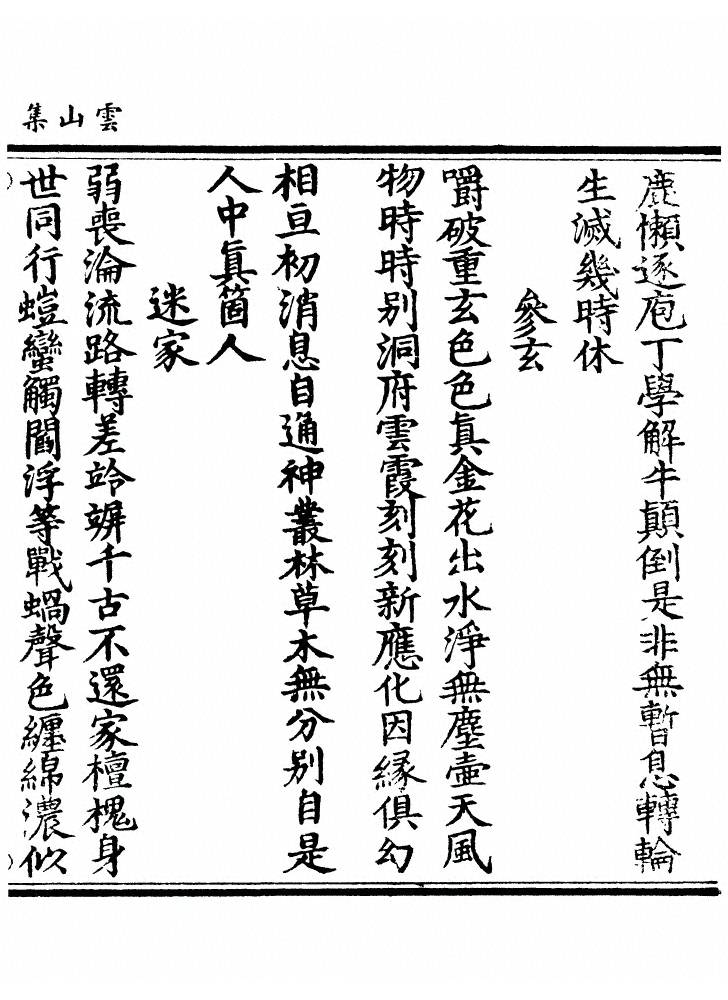 雲山集
鹿懶逐庖丁學解牛顛倒是非無暫息轉輪
生滅幾時休
參玄
嚼破重玄色色真金花出水淨無塵壺天風
物時時別洞府雲霞刻刻新應化因緣俱幻
相亘初消息自通神叢林草木無分別自是
人中真箇人
迷家
弱喪淪流路轉差竛竮千古不還家檀槐身
世同行螘蠻觸閻浮等戰蝸聲色纏綿濃似